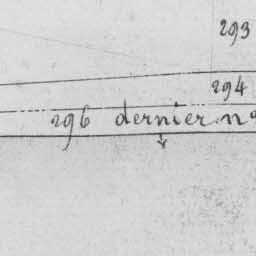 293
294
296 dernier nº